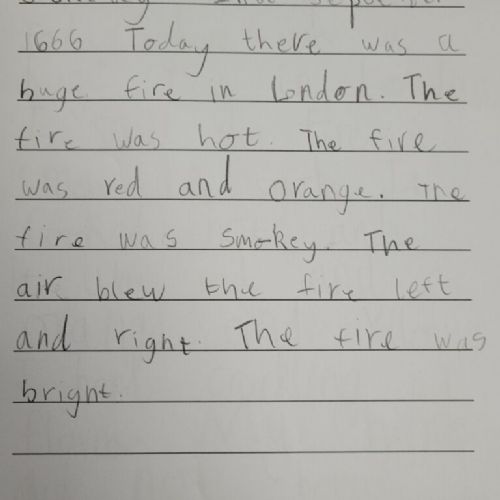 1666 Today there was a
huge fire in London. The
fire was hot. The fire
was red and orange. The
fire was smokey. The
air blew the fire left
and right. The fire was
bright.